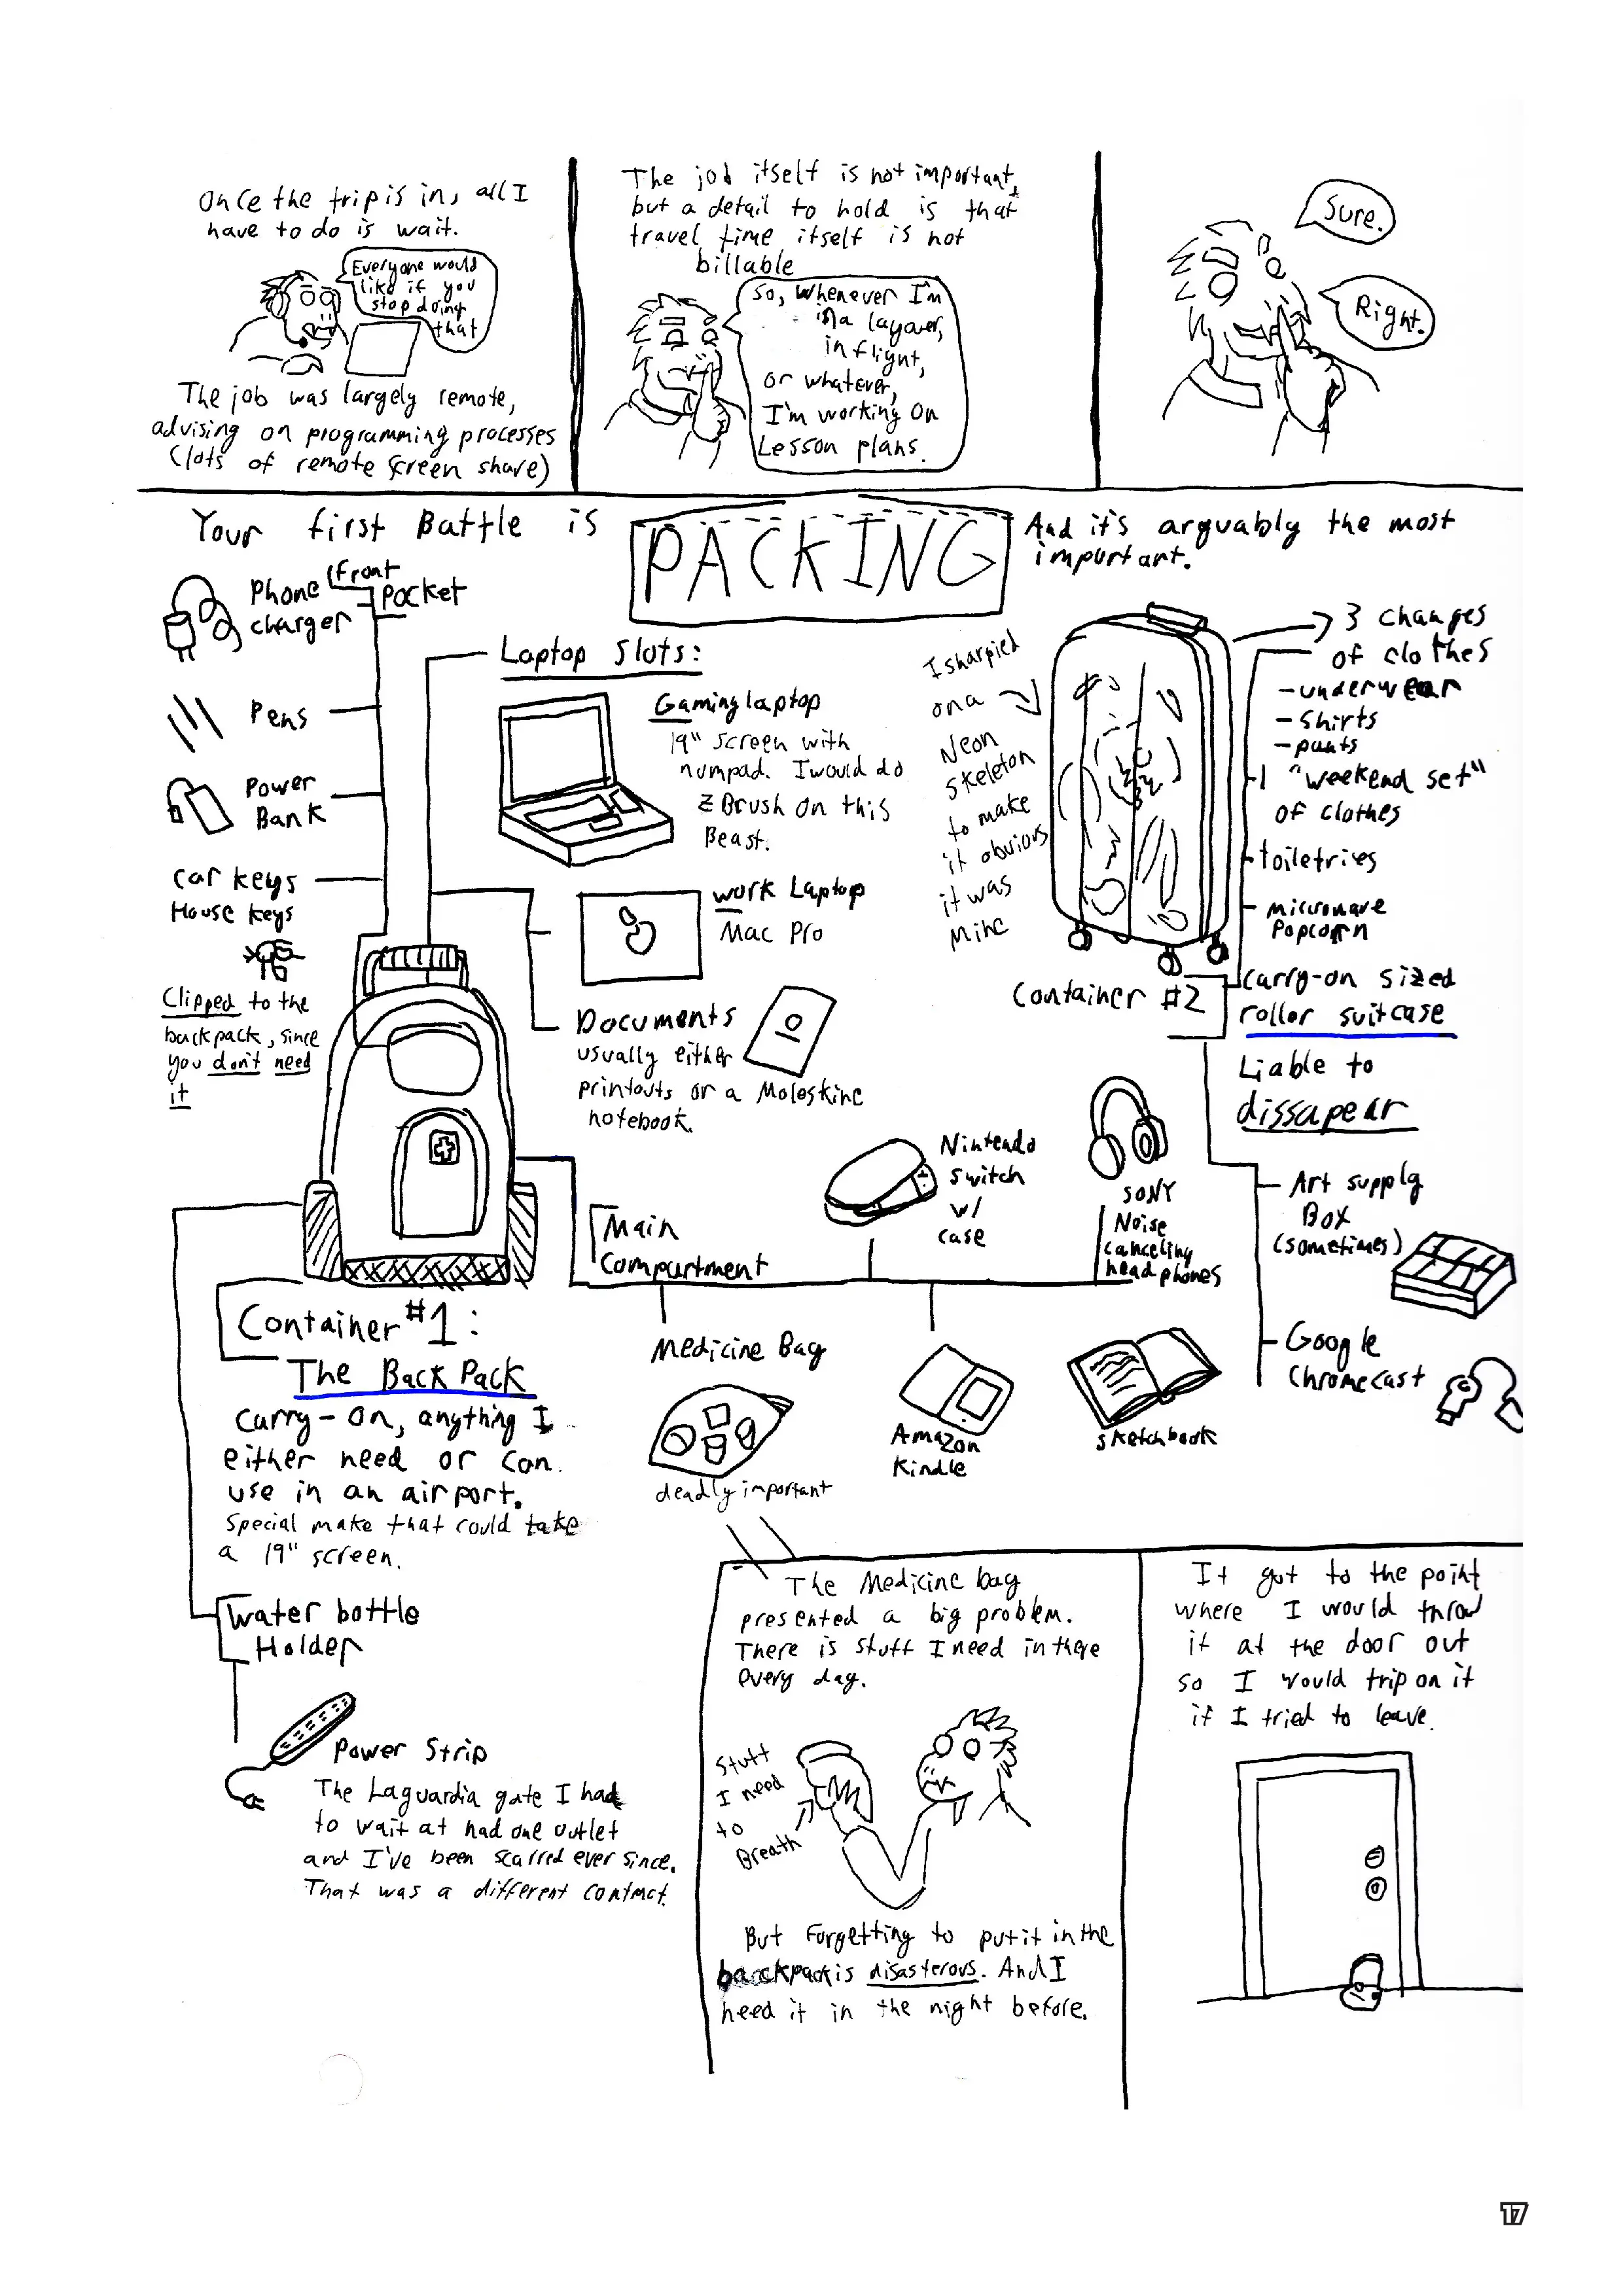 Once the trip is in, all I
have to do is wait.
Everyone would
like if you
stop doing
that
The job was largely remote,
advising on programming processes
(lots of remote screen share)
The job itself is not important,
but a detail to hold is that
travel time itself is not
billable
So, whenever I'm
in a layover,
in flight,
or whatever,
I'm working on
Lesson plans.
Sure.
Right.
Your first Battle is
PACKING
And it's arguably the most
important.
Front
Pocket
Phone
charger
Pens
Power
Bank
car keys
House keys
Clipped to the
backpack, since
you don't need
it
Laptop Slots:
Gaming laptop
19" screen with
numpad. I would do
Z Brush on this
Beast.
work Laptop
Mac Pro
Documents
usually either
printouts or a Moleskine
notebook.
I sharpied
on a
Neon
skeleton
to make
it obvious
it was
Mine
3 changes
of clothes
-underwear
-Shirts
-pants
1 "weekend set"
of clothes
toiletries
microwave
Popcorn
Container #2
Carry-on sized
roller suitcase
Liable to
dissapear
Art supply
Box
(sometimes)
Google
Chromecast
Main
Compartment
Nintendo
Switch
w/
case
SONY
Noise
canceling
headphones
Medicine Bag
deadly important
Amazon
Kindle
sketchbook
Container #1:
The BackPack
Carry-On, anything I
either need or can
use in an airport.
Special make that could take
a 19" screen.
Water bottle
Holder
Power Strip
The Laguardia gate I had
to wait at had one outlet
and I've been scarred ever since.
That was a different contract.
The Medicine bag
presented a big problem.
There is stuff I need in there
every day.
Stuff
I need
to
Breath
But Forgetting to put it in the
backpack is disasterous. And I
need it in the night before.
It got to the point
where I would throw
it at the door out
so I would trip on it
if I tried to leave.
17